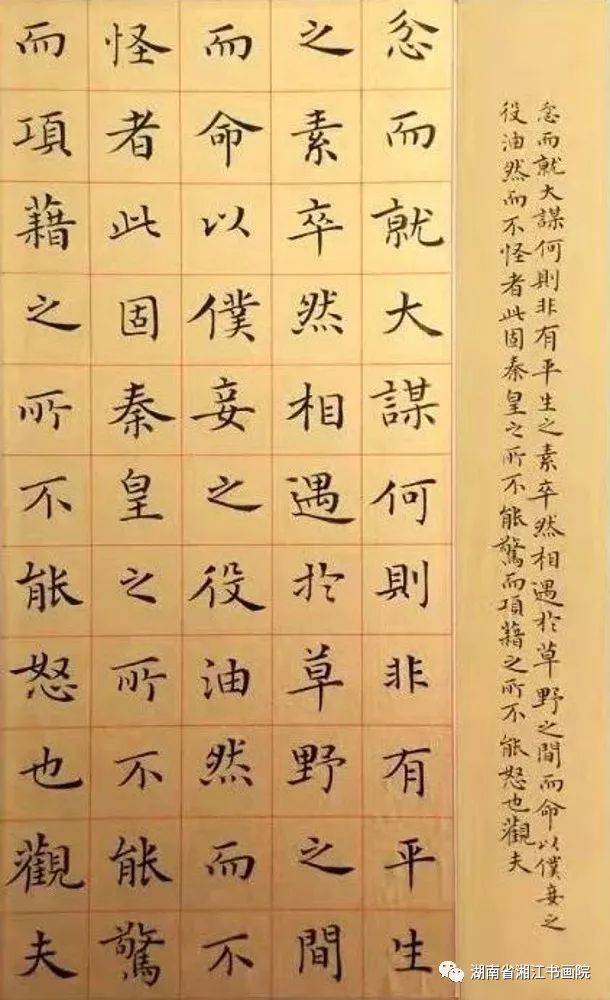 忿而就大謀何則非有平生之素卒然相遇於草野之間而命以僕妾之
役油然而不怪者此固秦皇之所不能驚而項藉之所不能怒也觀夫
忿而就大謀何則非有平生
之素卒然相遇於草野之間
而命以僕妾之役油然而不
怪者此固秦皇之所不能驚
而項藉之所不能怒也觀夫
湖南省湘江书画院